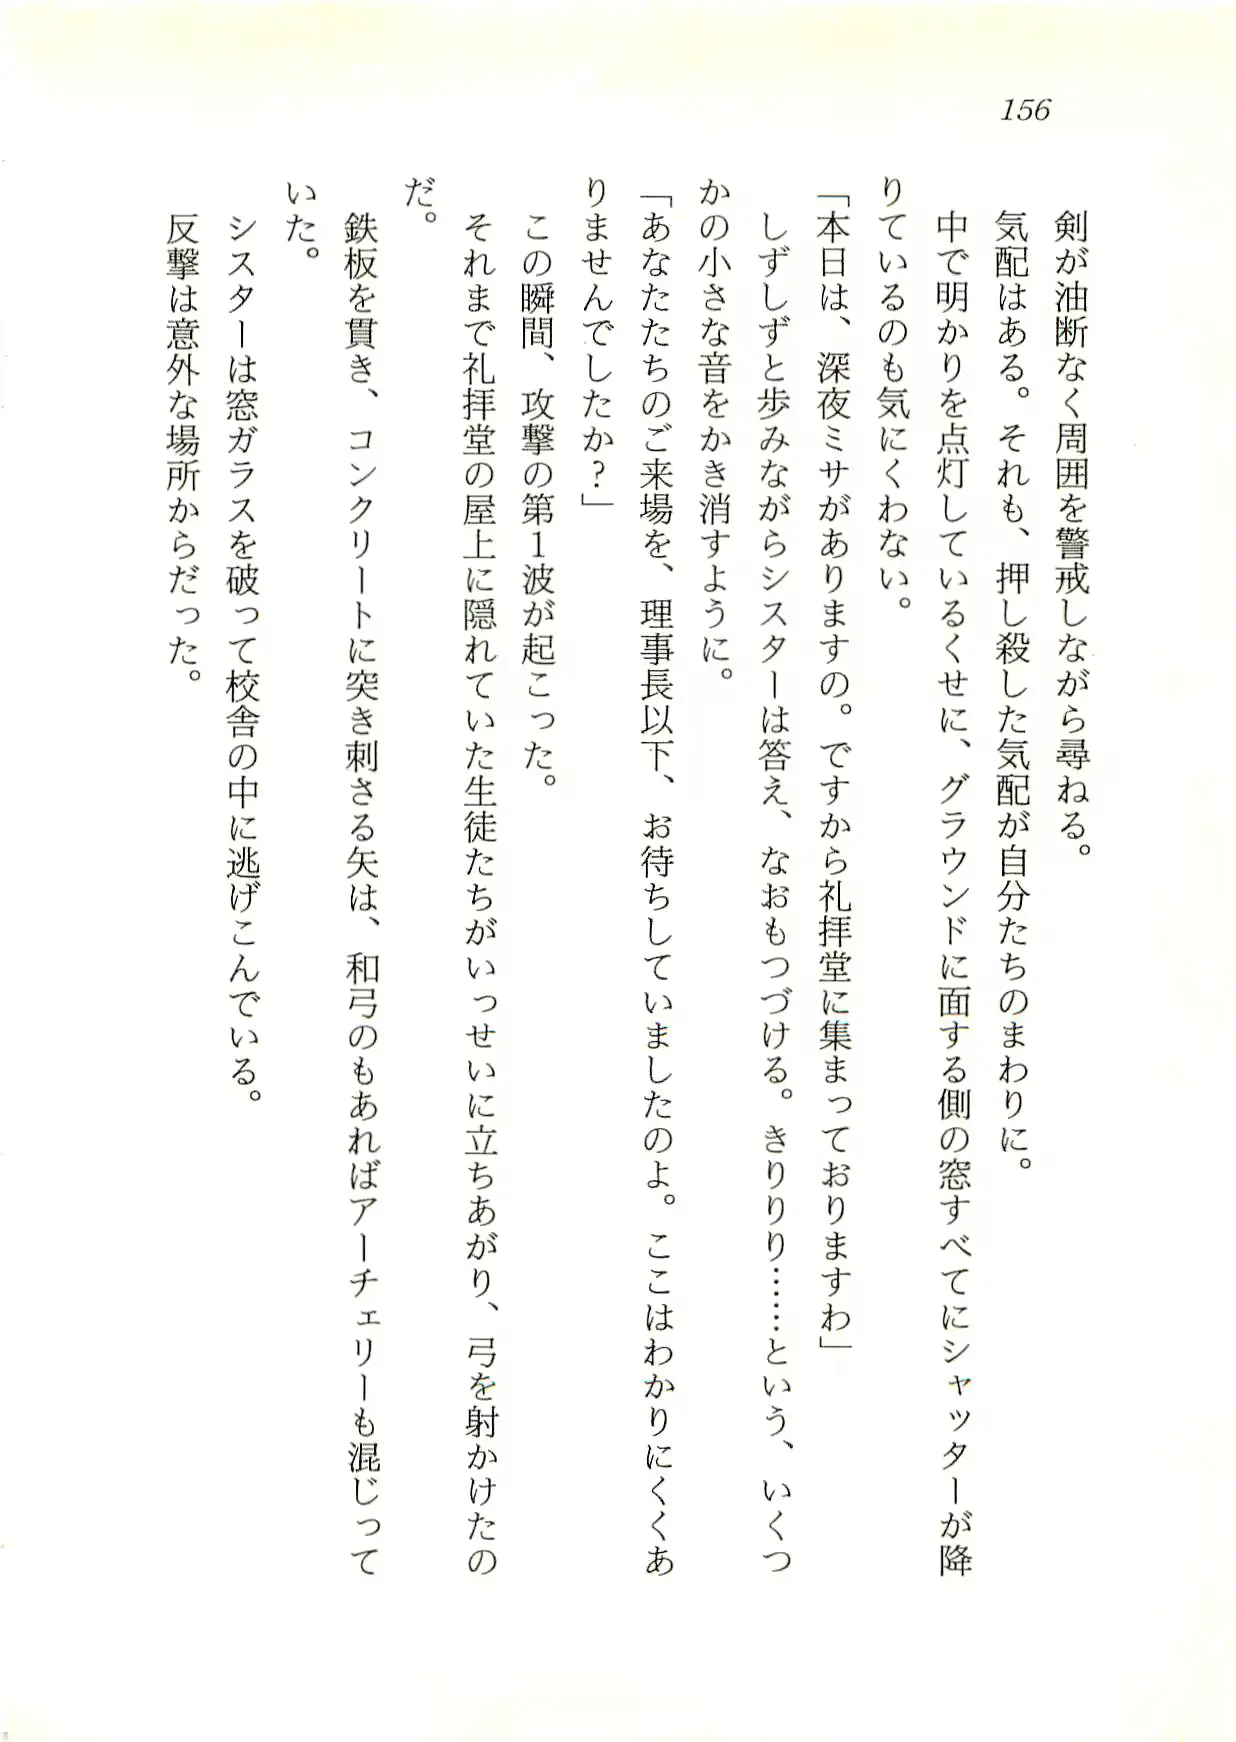 156
剣が油断なく周囲を警戒しながら尋ねる。
気配はある。それも、押し殺した気配が自分たちのまわりに。
中で明かりを点灯しているくせに、グラウンドに面する側の窓すべてにシャッターが降
りているのも気にくわない。
「本日は、深夜ミサがありますの。ですから礼拝堂に集まっておりますわ」
しずしずと歩みながらシスターは答え、なおもつづける。きりりり……という、いくつ
かの小さな音をかき消すように。
「あなたたちのご来場を、理事長以下、お待ちしていましたのよ。ここはわかりにくくあ
りませんでしたか？」
この瞬間、攻撃の第１波が起こった。
それまで礼拝堂の屋上に隠れていた生徒たちがいっせいに立ちあがり、弓を射かけたの
だ。
鉄板を貫き、コンクリートに突き刺さる矢は、和弓のもあればアーチェリーも混じって
いた。
シスターは窓ガラスを破って校舎の中に逃げこんでいる。
反撃は意外な場所からだった。